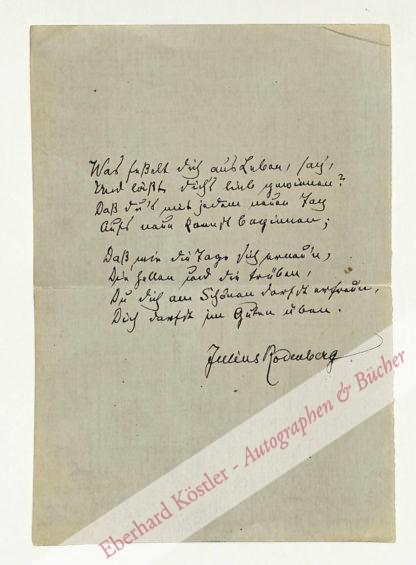 Was fesselt dich ans Leben, sag',
Und läßt's dich lieb gewinnen?
Daß du's mit jedem neuen Tag
Aufs neue kannst beginnen;
Daß, wie die Tage sich erneu'n,
Die hellen und die trüben,
Du dich am Schönen darfst erfreun,
Dich darfst im Guten üben.
Julius Rodenberg
Eberhard Köstler - Autographen & Bücher